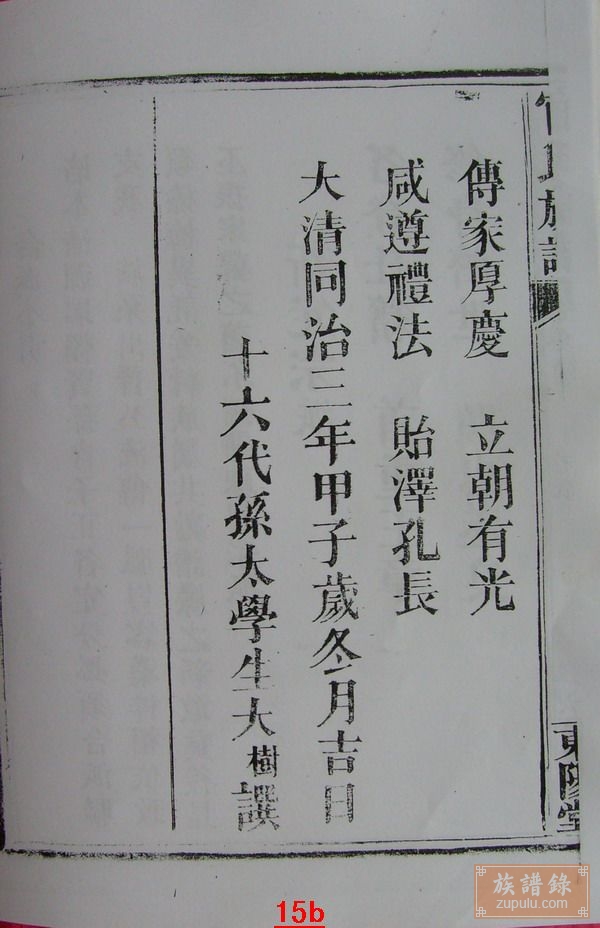 傳家厚慶　立朝有光
咸遵禮法　貽澤孔長
大清同治三年甲子歲冬月吉日
十六代孫太學生大樹譔
氏族譜
東陽堂
族譜錄
zupulu.com
15b